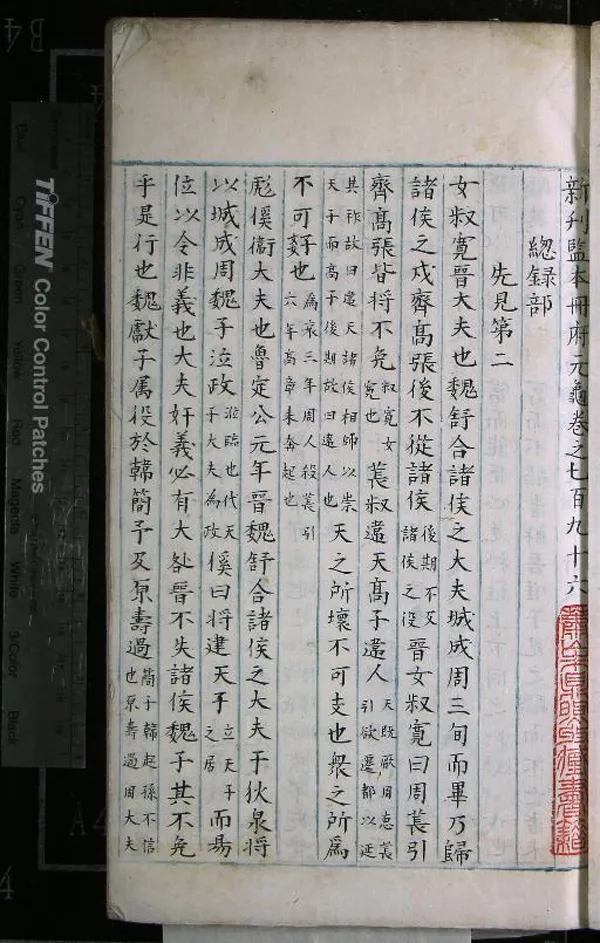 新刋監本冊府元龜卷之七百九十六
緫錄部
先見第二
女叔寬晉大夫也魏舒合諸侯之大夫城成周三旬而畢乃歸
諸侯之戍齊髙張後不從諸侯後期不及諸侯之役晉女叔寬曰周萇引
齊髙張皆將不免叔寬女寬也萇叔違天髙子違人天既厭周德萇引欲遷都以延
其祚故曰違天諸侯相帥以崇天子而高子後期故曰違人也天之所壞不可支也衆之所爲
不可奸也爲哀三年周人殺萇引六年高章来奔起也
彪傒衞大夫也魯定公元年晉魏舒合諸侯之大夫于狄泉將
以城成周魏子涖政涖臨也代天子大夫為政傒曰将建天子立天子之居而易
位以令非義也大夫奸義必有大咎晉不失諸侯魏子其不免
乎是行也魏獻子屬役於韓簡子及原壽過簡子韓起孫不信也原壽過周大夫
TIFFEN Color Control Patches
Magenta White 3/Color Black